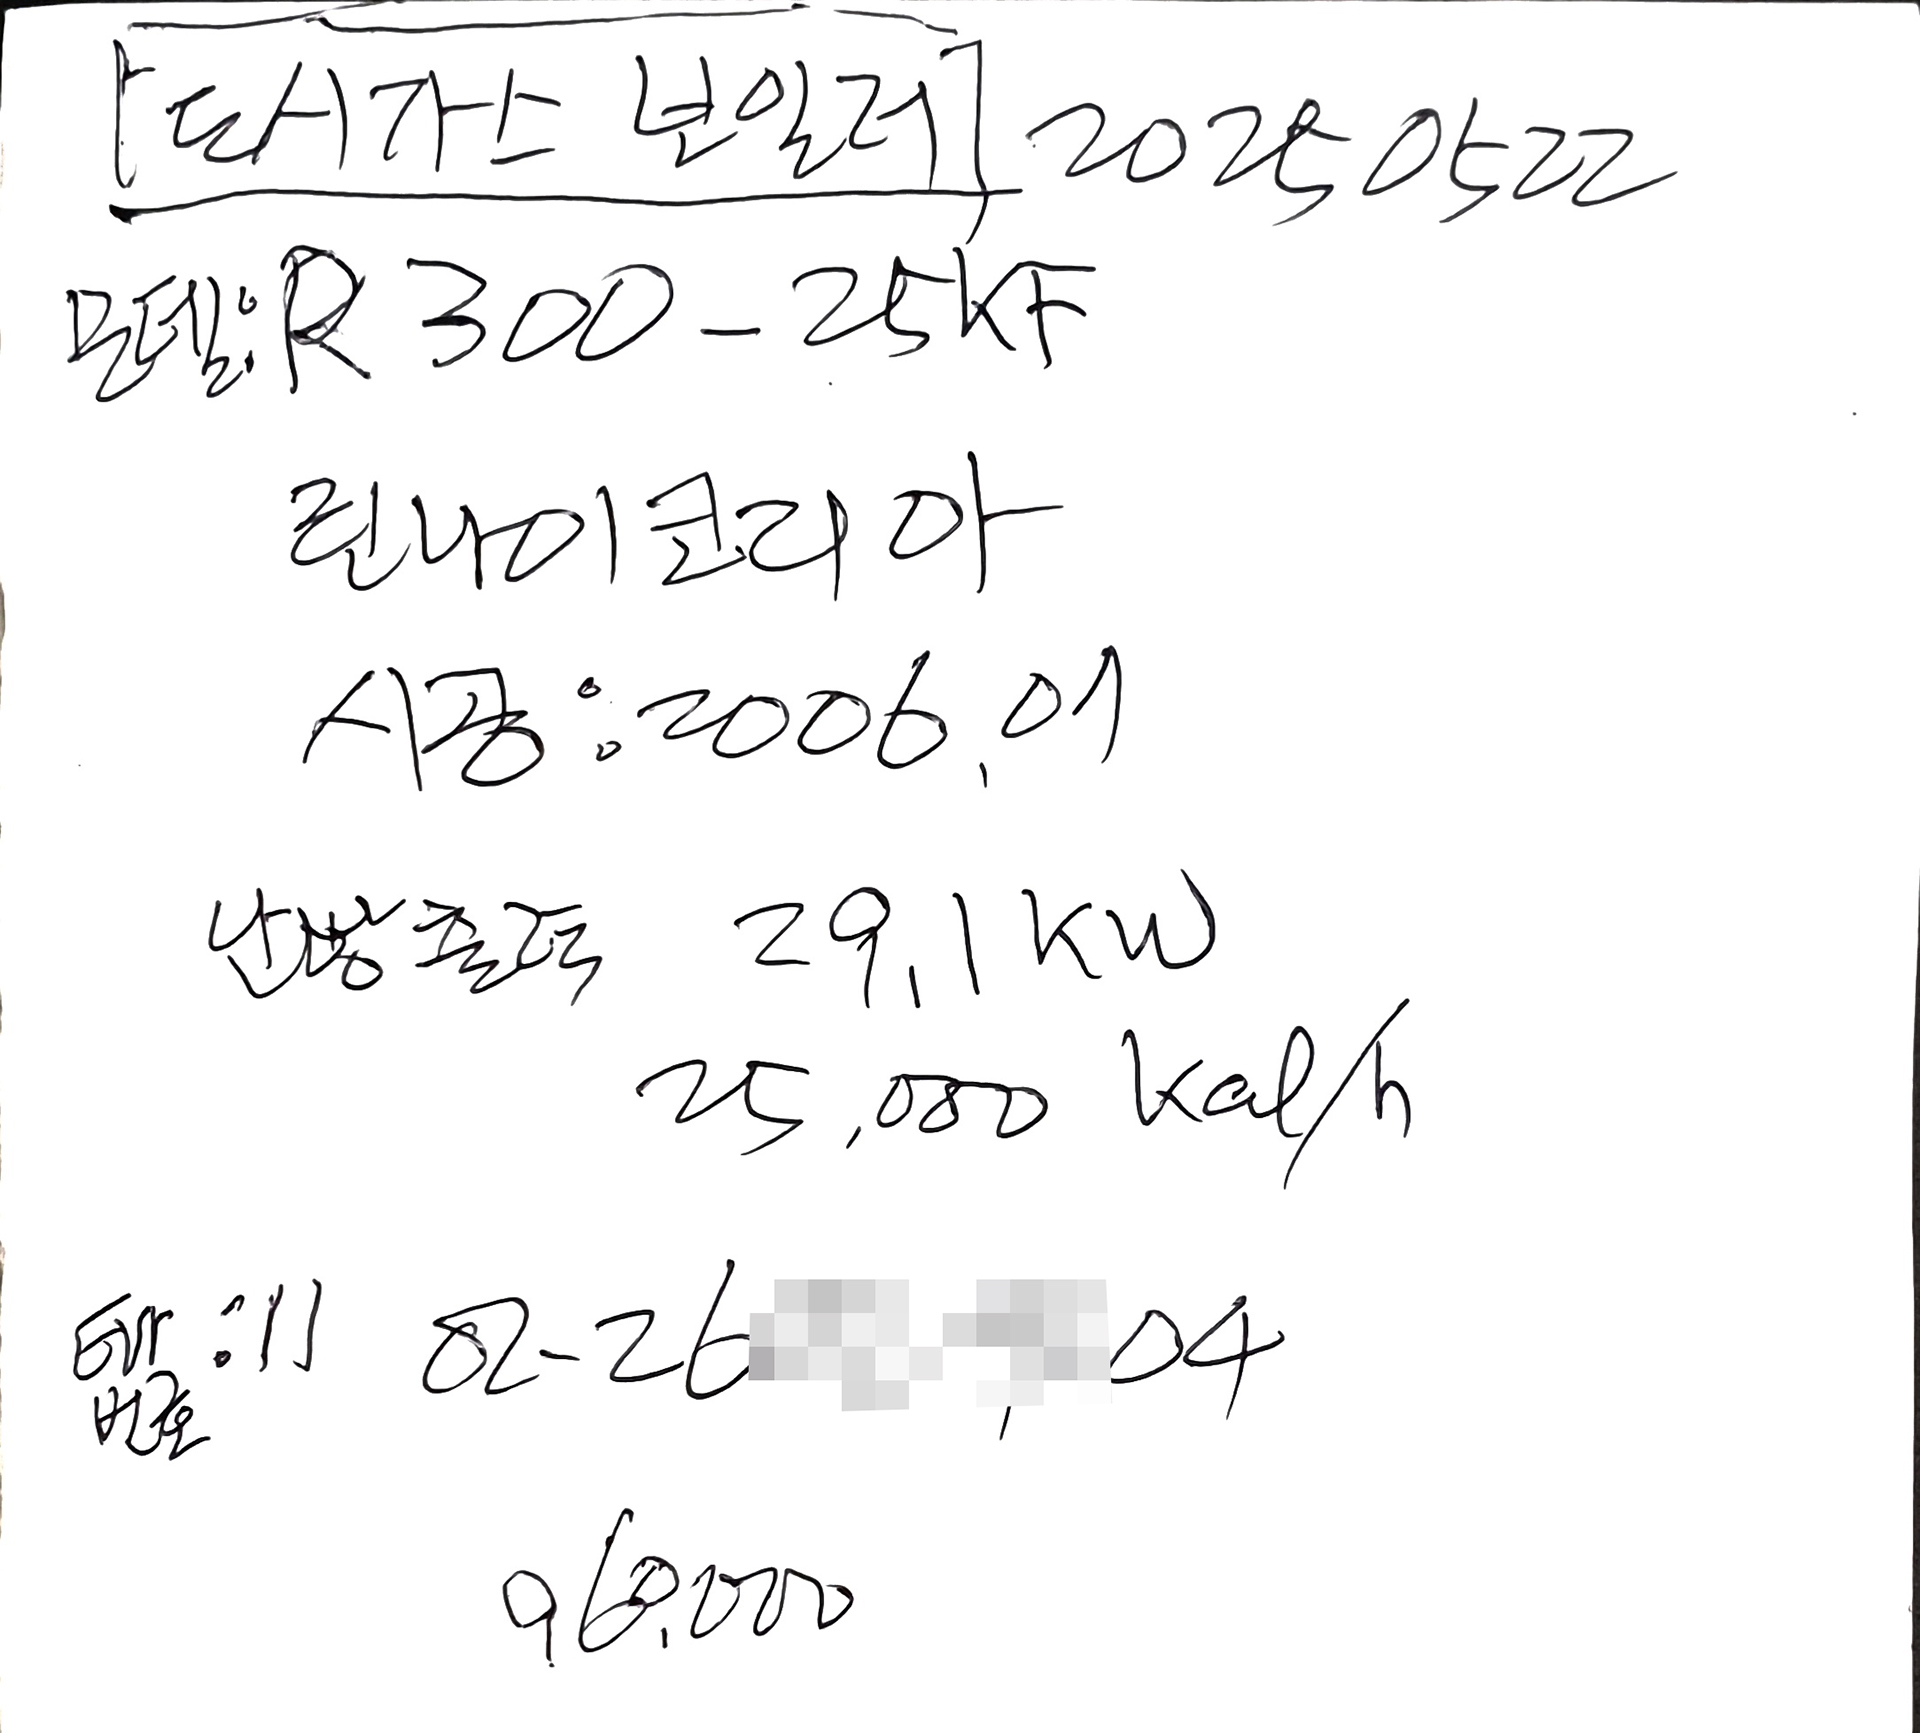 [도시가스 보일러] 2025 05 22
모델: R 300-25KF
린나이코리아
시공: 2006.01
난방출력 29.1 kW
25,000 kcal/h
82-26 04
번호
960,000